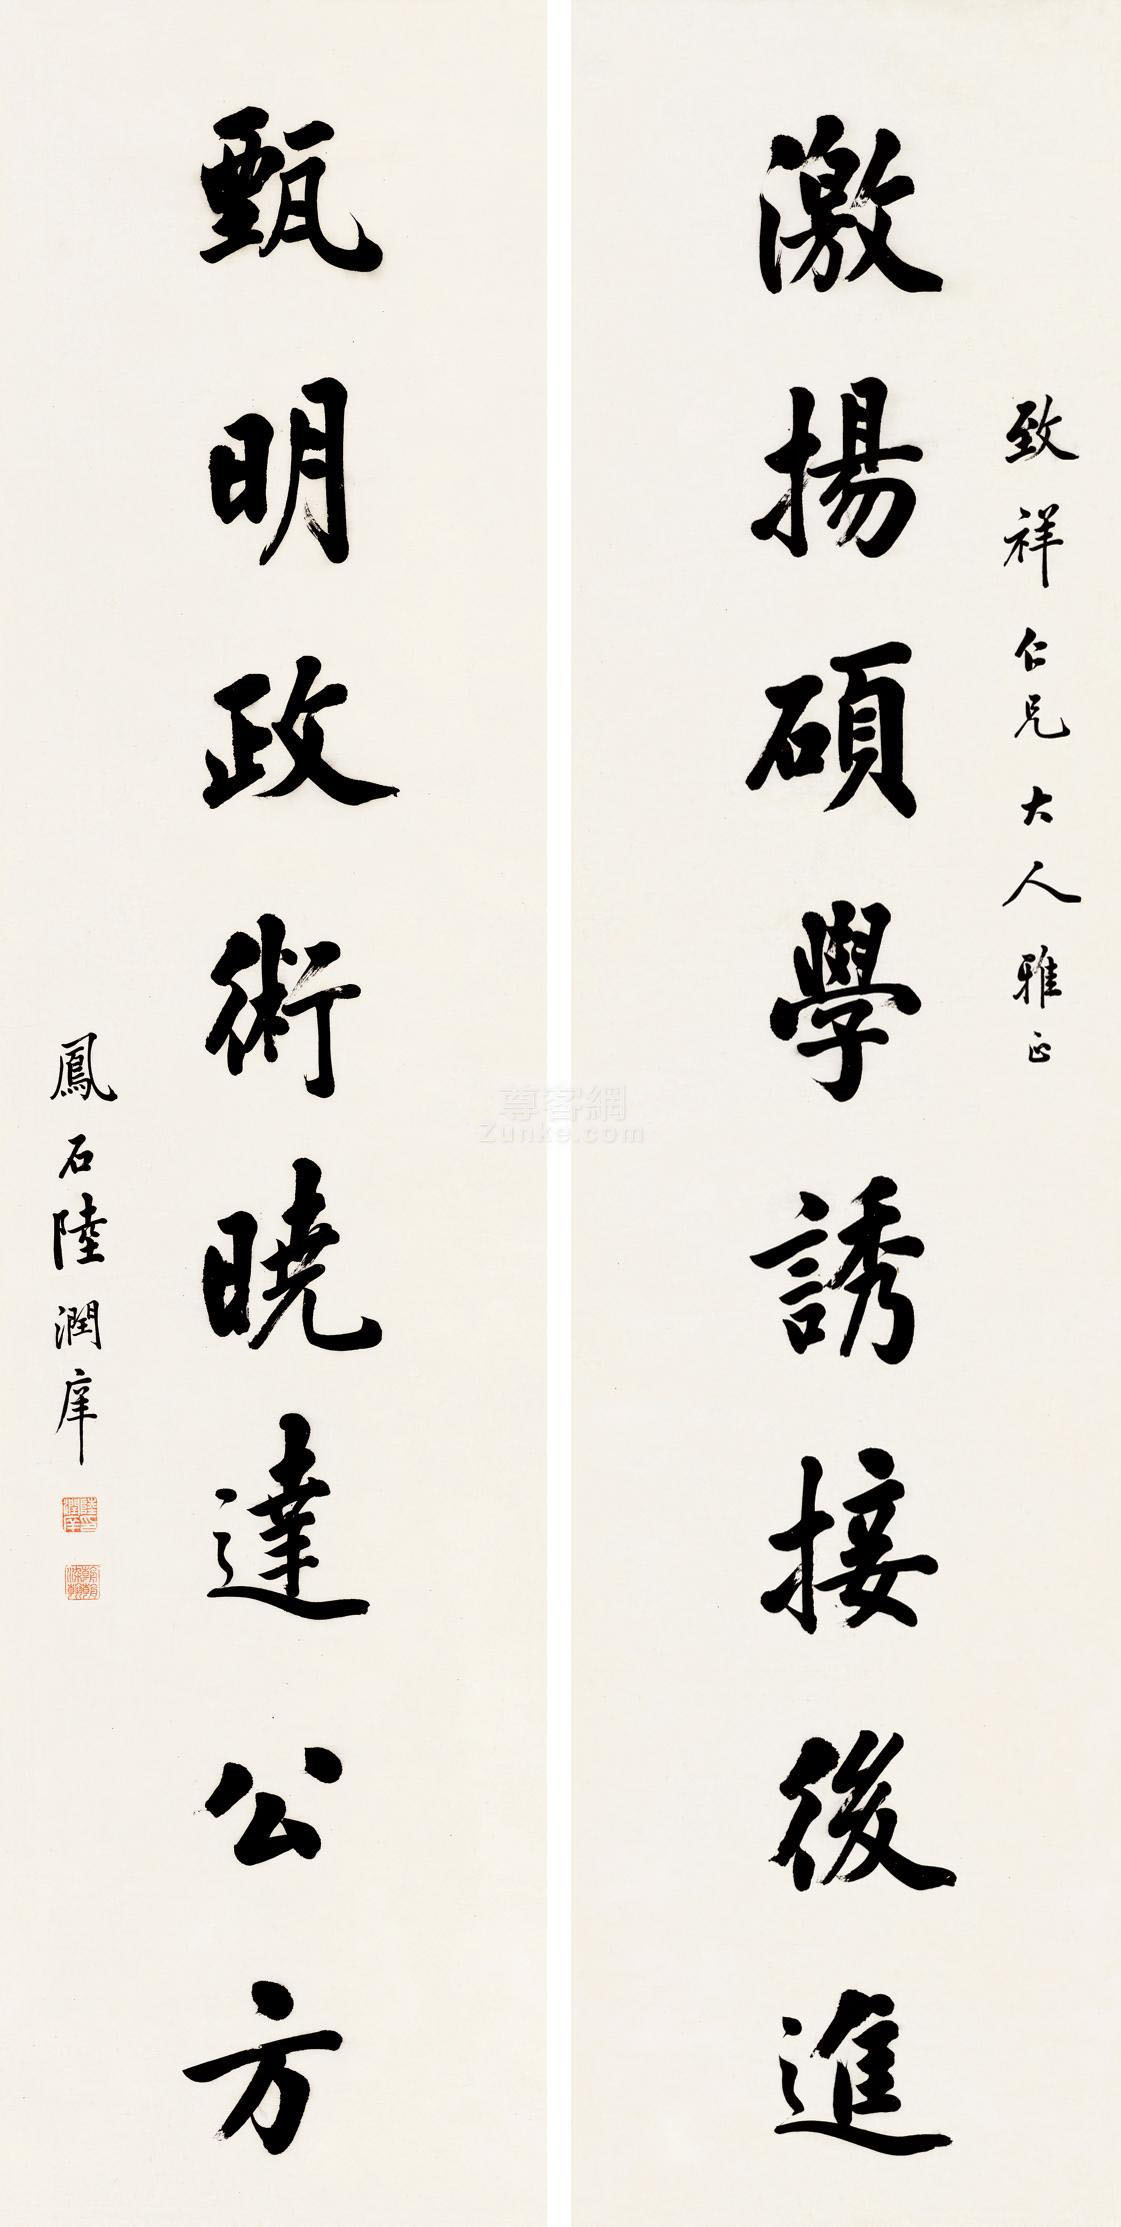 致祥仁兄大人雅正
激揚碩學誘接後進
甄明政術曉達公方
鳳石陸潤庠
尊客網
Zunke.com